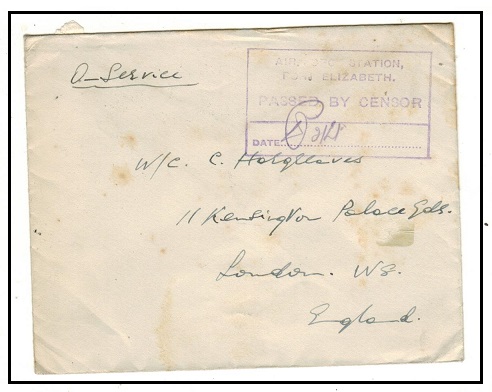 O-Service
AIR FORCE STATION,
PORT ELIZABETH.
PASSED BY CENSOR
DATE
W/C. C. Hargreaves
11 Kensington Palace Gds.
London. W8.
England.